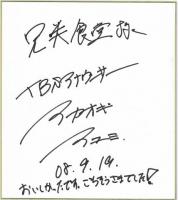 兄夫食堂さんへ
TBSアナウンサー
アカオギ
アユミ
08.9.19.
おいしかったです。ごちそうさまでした!